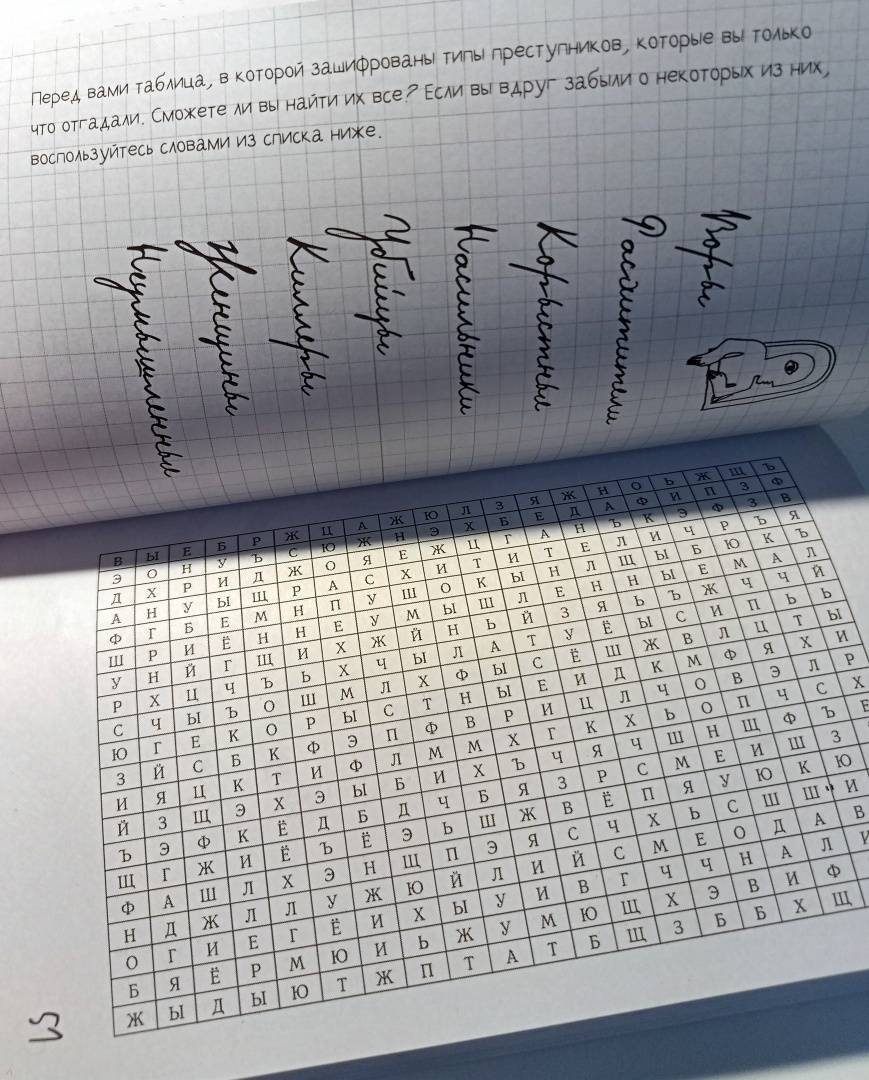 Перед вами таблица, в которой зашифрованы типы преступников, которые вы только
что отгадали. Сможете ли вы найти их все? Если вы вдруг забыли о некоторых из них,
воспользуйтесь словами из списка ниже.
Воры
Расхитители
Корыстные
Насильники
Убийцы
Киллеры
Женщины
Неумышленные
В Ы Е Б Р Ж Ц А Ж Ю Л З Я Ж Н О Ь Ж Щ Ъ
Э О Н У Ъ С Ю Ж Н Э Х Б Е Д А Ф И П З Ф
Д Х Р И Д Ж О Я Е Ж Ц Г А Н Ъ К Э Ф З В
А Н У Ы Щ Р А С Х И Т И Т Е Л И Ч Р Ъ Я
Ф Г Б Е М Н П У Ш О К Ы Н Л Щ Ы Б Ю К Ъ
Ш Р И Ё Н Н Е У М Ы Ш Л Е Н Н Ы Е М А Л
У Н Й Г Щ И Х Ж Й Н Ь Й З Я Ь Ъ Ж Ч Ч Й
Р Х Ц Ч Ъ Ь Х Ч Ы Л А Т У Ё Ы С И П Ь Ь
С Ч Ы Ъ О Ш М Л Х Ф Ы С Ё Ш Ж В Л Ц Т Ы
Ю Г Е К О Р Ы С Т Н Ы Е И Д К М Ф Я Х И
З Й С Б К Ф Э П Ф В Р И Ц Л Ч О В Э Л Р
И Я Ц К Т И Ф Л М М Х Г К Х Ь О П Ч С Х
Й З Щ Э Х Э Ы Б И Х Ъ Ч Я Ч Ш Н Щ Ф Ъ Е
Ъ Э Ф К Ё Д Б Д Ч Б Я З Р С М Е И Ш З
Щ Г Ж И Ё Ъ Ё Э Ь Ш Ж В Ё П Я У Ю К Ю
Ф А Ш Л Х Э Н Щ П Э Я С Ч Х Ь С Ш Ш И
Н Д Ж Л Л У Ж Ю Й Л И Й С М Е О Д А В
О Г И Е Г Ё И Х Ы У И В Г Ч Ч Н А Л И
Б Я Ё Р М Ю И Ь Ж У М Ю Щ Х Э В И Ф
Ж Ы Д Ы Ю Т Ж П Т А Т Б Щ З Б Б Х Щ